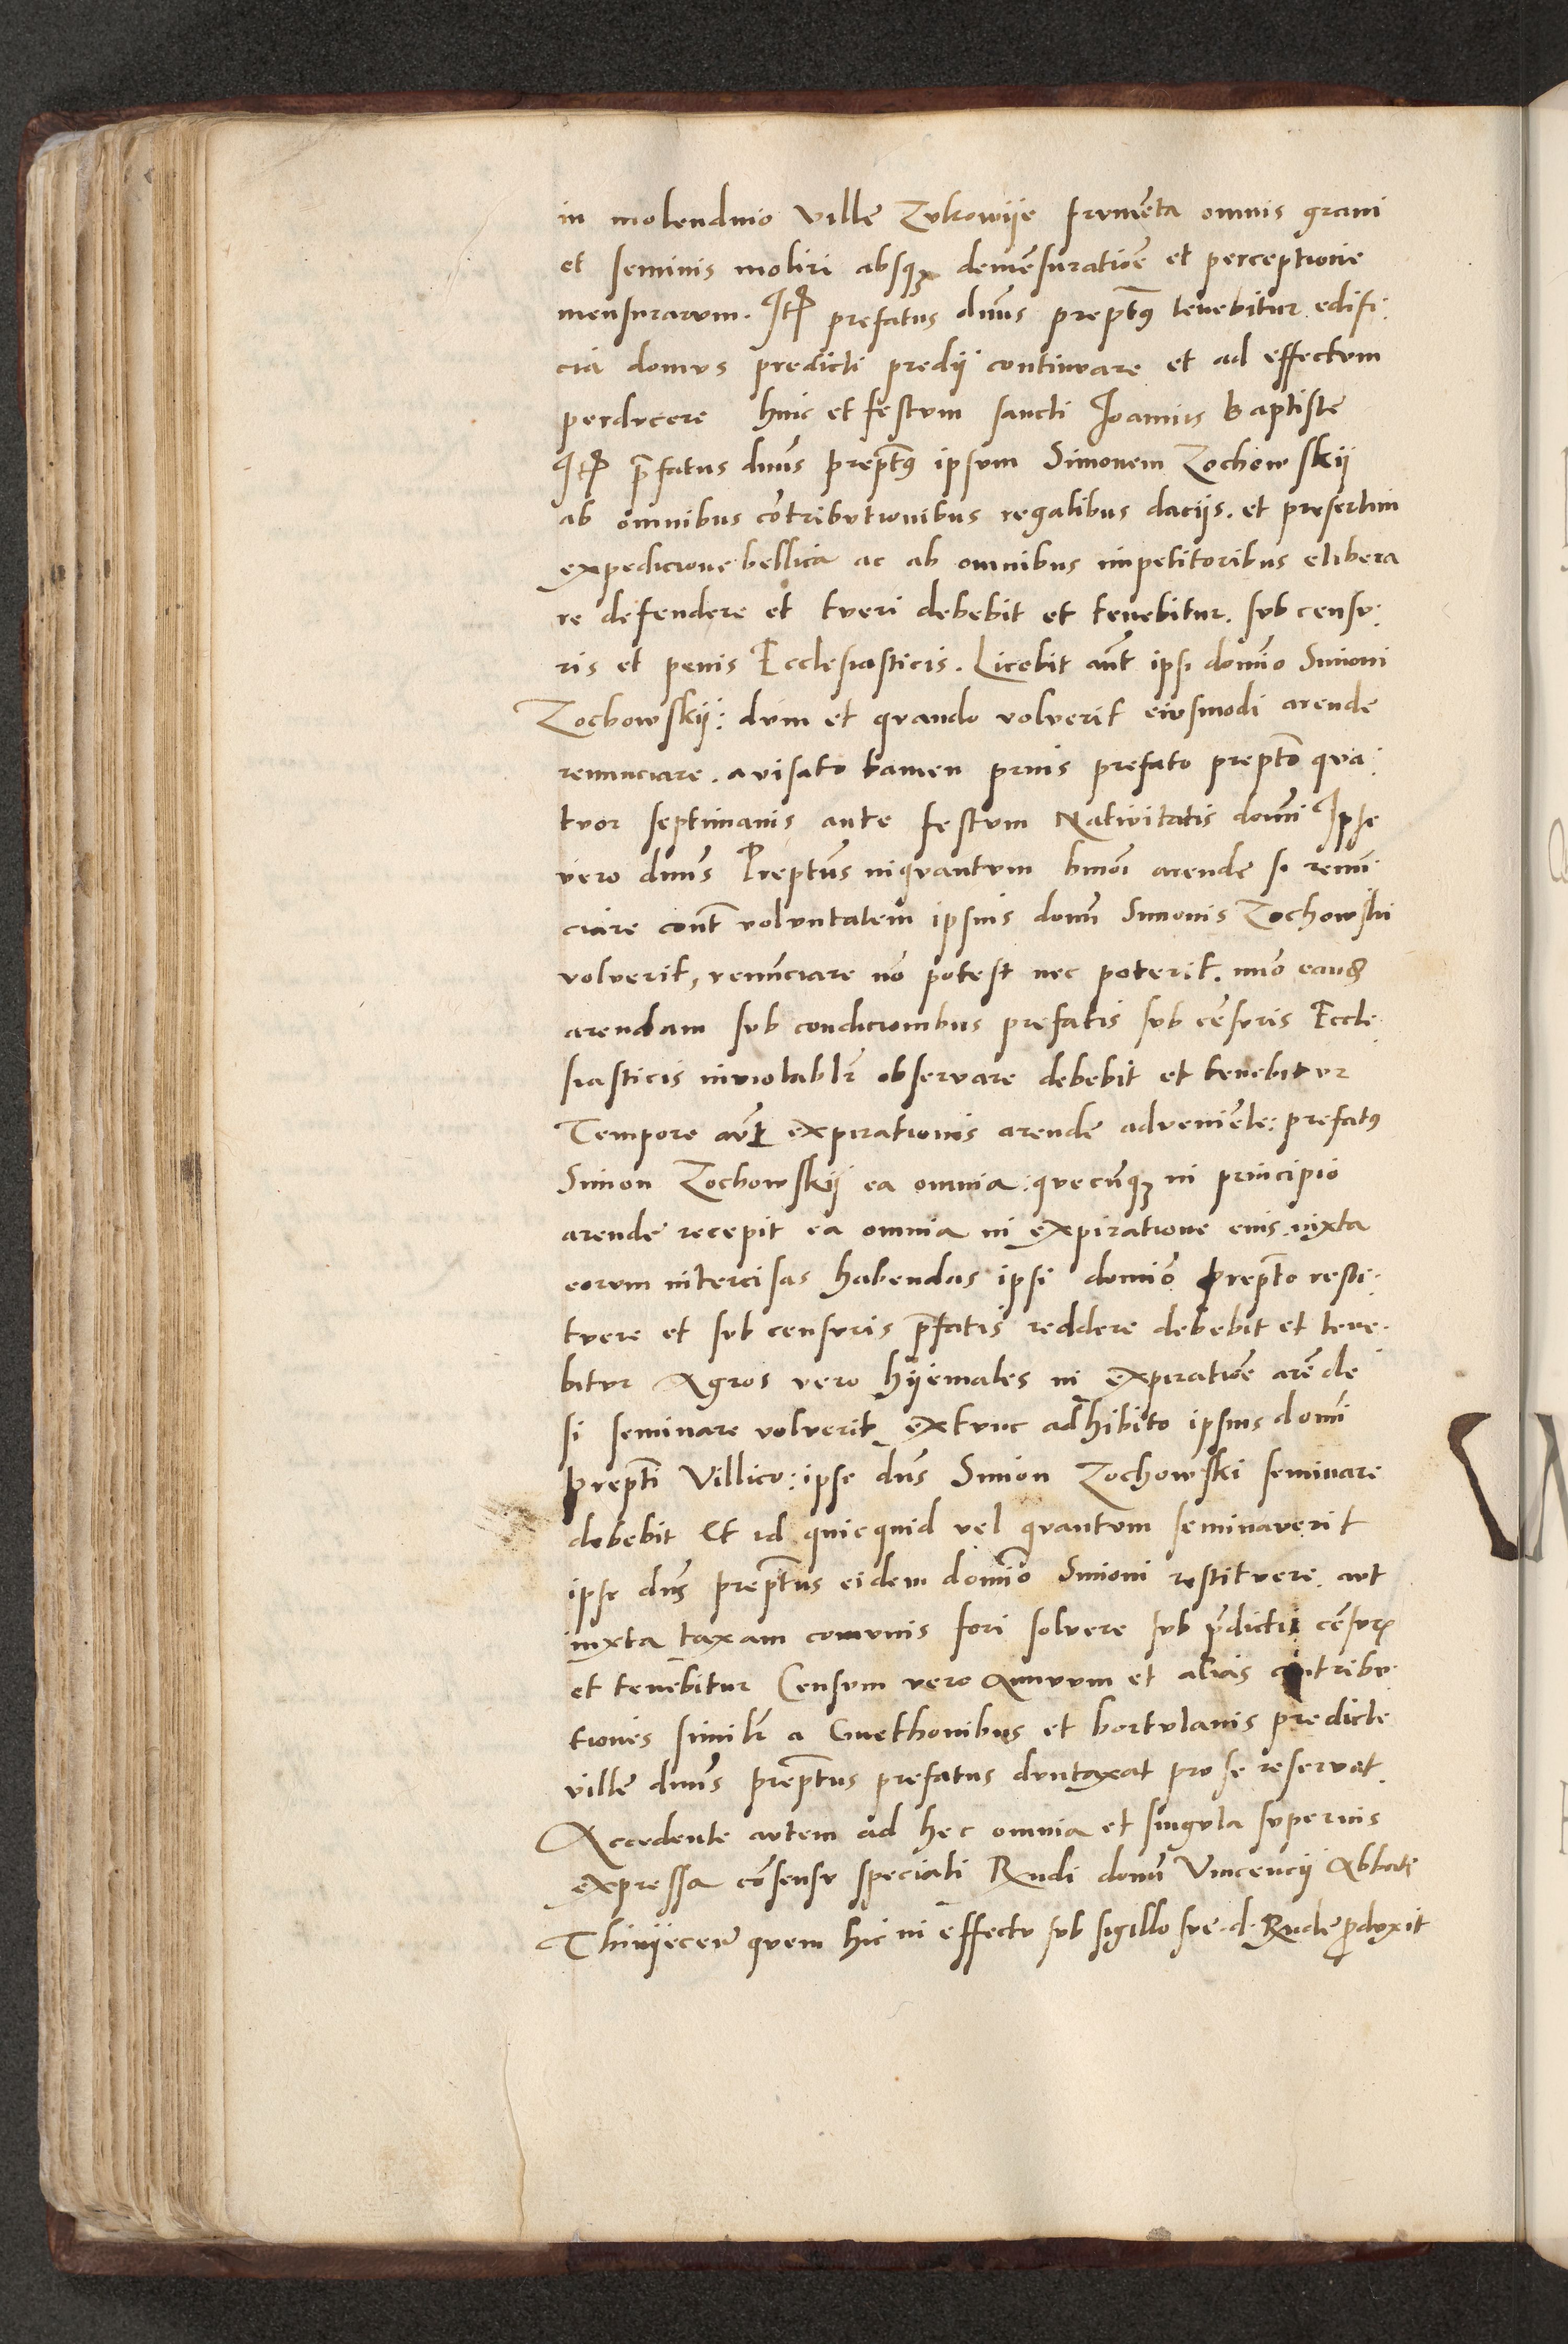 in molendino ville Zvkowije frvmēta omnis grani
et seminis moliri absqꝫ demēsuratioē et perceptione
mensurarvm. Itē prefatus dnūs preptꝰ tenebitur edifi:
cia domvs predicti predij continvare et ad effectvm
perdvcere hinc et festvm sancti Joannis Baptiste
Itē p̄fatus dnūs preptꝰ ipsvm Simonem Zochowskij
ab omnibus cōtribvtionibus regalibus dacijs. et presertim
expedicione bellica ac ab omnibus impetitoribus elibera
re defendere et tveri debebit et tenebitur. svb censv:
ris et penis Ecclesiasticis. Licebit aūt ipsi domīo Simoni
Zochowskij: dvm et qvando volverit eivsmodi arende
renunciare. avisato tamen prius prefato preptō qva:
tvor septimanis ante festvm Nativitatis domī Ipse
vero dnūs Preptūs inqvantvm hmōi arende si renū
ciare cont̄ volvntatem ipsius domī Simonis Zochowski
volverit, renūciare nō potest nec poterit. imō eandē
arendam svb condicionibus prefatis svb cēsvris Eccle:
siasticis inviolablr̄ observare debebit et tenebitvr
Tempore avt̄ expirationis arende adveniēte: prefatꝰ
Simon Zochowskij ea omnia: qvecūqꝫ in principio
arende recepit ea omnia in expiratione eius iuxta
eorvm intercisas habendas ipsi domīo preptō resti:
tvere et svb censvris p̄fatis reddere debebit et tene:
bitvr Agros vero hijemales in expiratioē arēde
si seminare volverit extvnc adhibito ipsius domī
preptī Villico: ipse dn̄s Simon Zochowski seminare
debebit Et id quicquid vel qvantvm seminaverit
ipse dn̄s preptūs eidem domīo Simoni restitvere. avt
iuxta taxam comvnis fori solvere svb p̄dictis cēsvr
et tenēbitur Censvm vero Annvvm et alias contribv:
tiones similr̄ a Cmethonibus et hortvlanis predicte
ville dnūs preptūs prefatus dvntaxat pro se reservat.
Accedente avtem ad hec omnia et singvla svperius
expressa cōsensv speciali Rndi domī Vincencij Abbatis
Thinijecen̄ qvem hic in effectv svb sigillo sve d. Rnde p̄dvxit